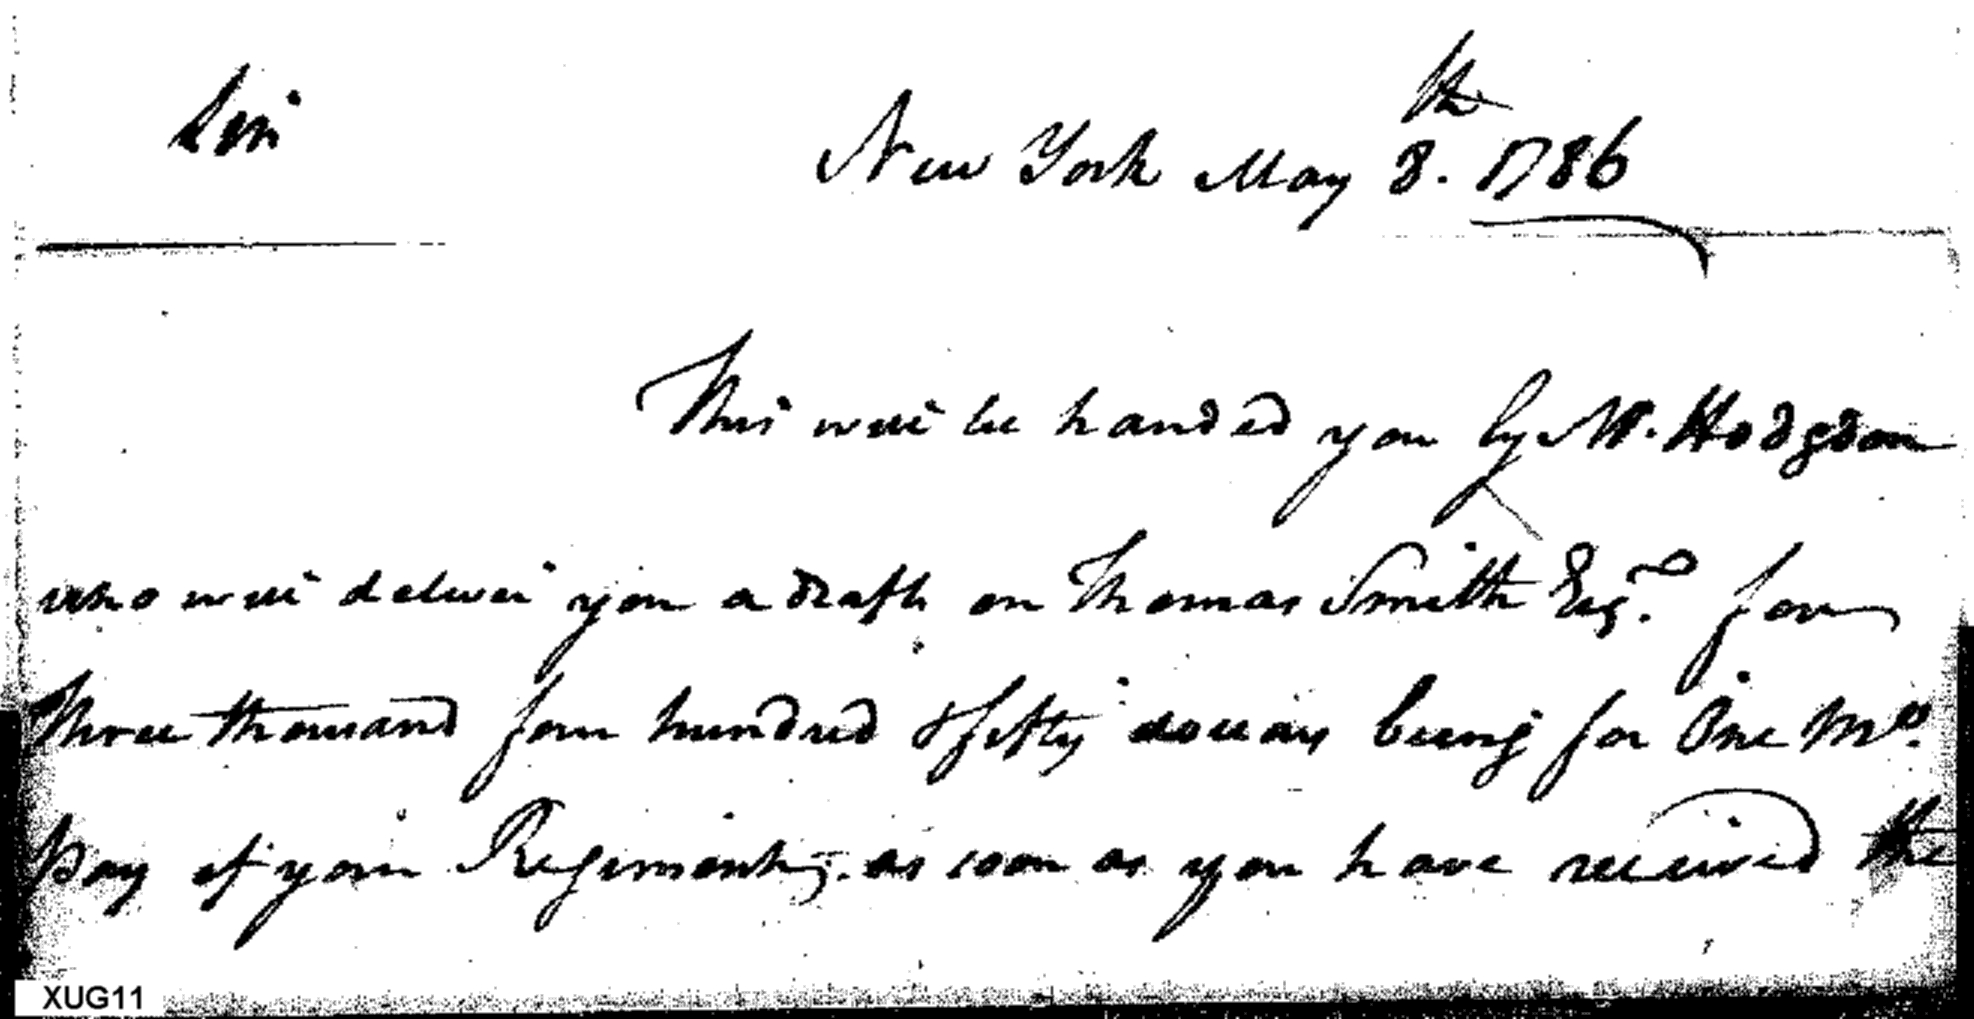 Sir
New York May 8th. 1786
This will be handed you by Mr. Hodgdon
who will deliver you a draft on Thomas Smith Esqr. for
Three thousand four hundred & fifty dollars being for One Mo.
pay of your Regiment; as soon as you have received the
XUG11